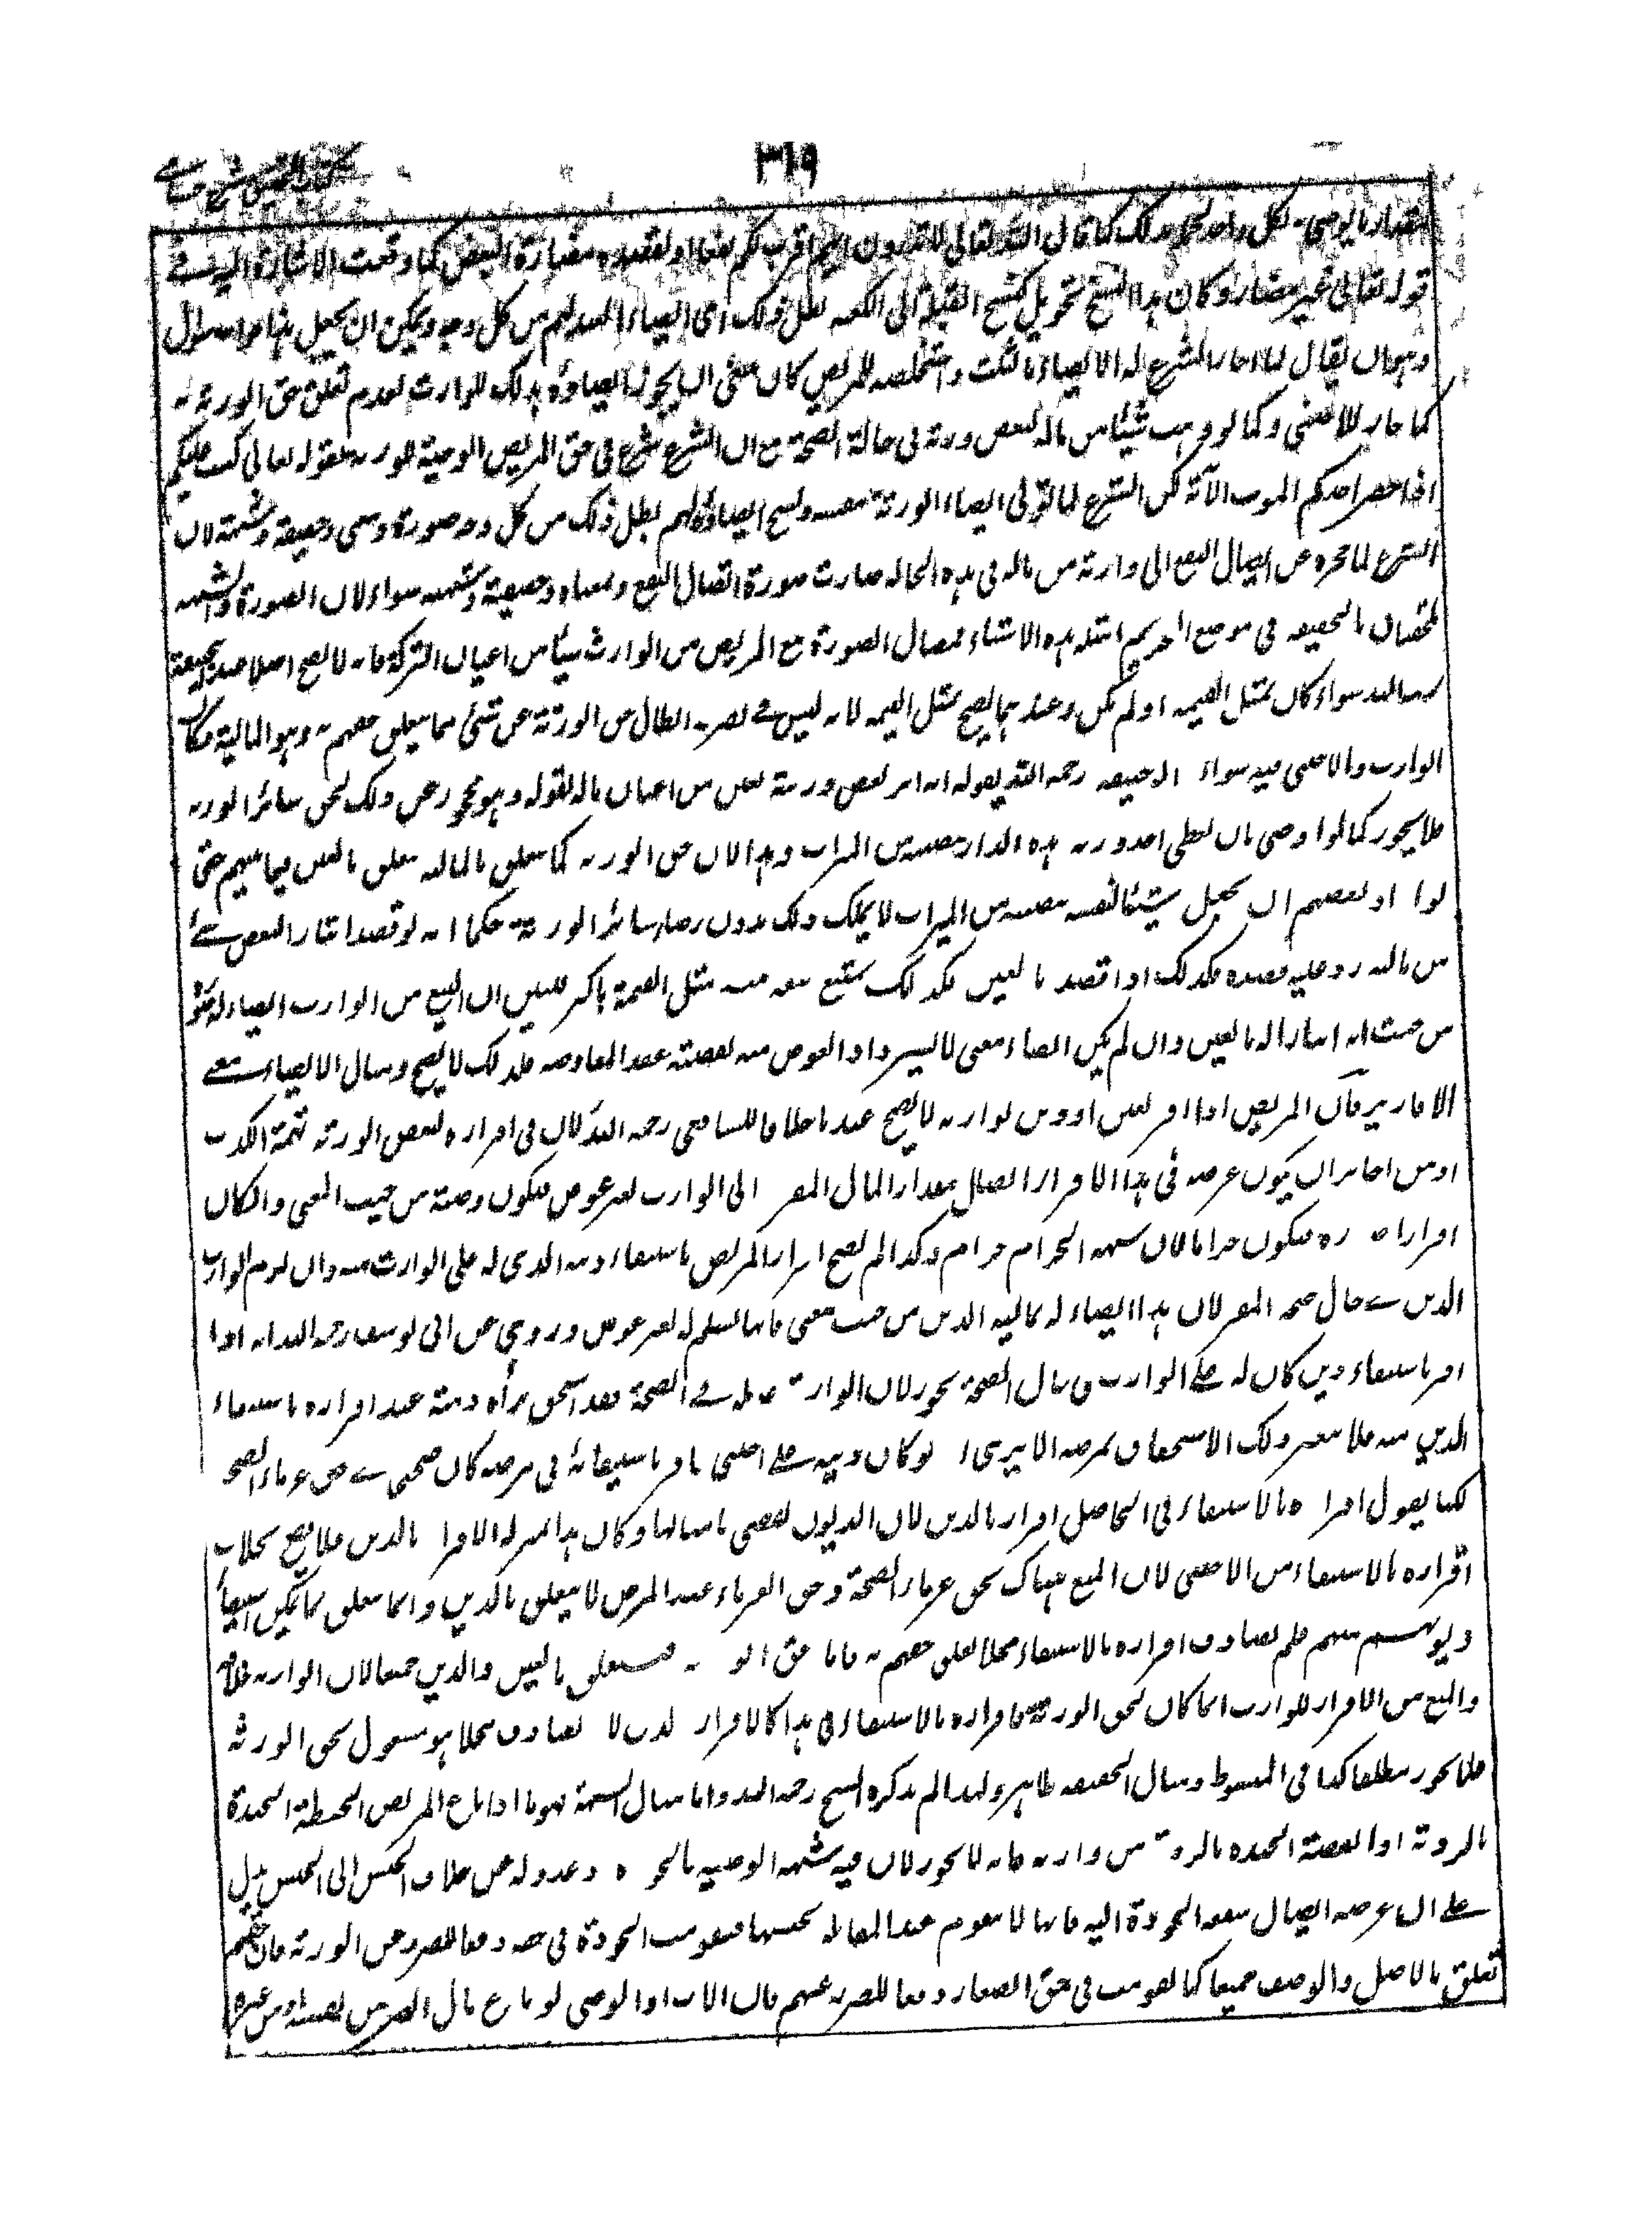 ٣١٩
كتاب التحقيق شرح حسامى
بمقدار ما يوصى لكل واحد لجهله بذلك كما قال الله تعالى لا تدرون ايهم اقرب لكم نفعا او لقصده مضارة البعض كما وقعت الاشارة اليه فى
قوله تعالى غير مضار وكان هذا النسخ تحويل كنسخ القبلة الى الكعبة بطل ذلك اى ايصاء العبد لهم من كل وجه ويمكن ان يجعل هذا جواب سوال
وهو ان يقال لما اجاز الشرع له الايصاء بالثلث واستخلصه للمريض كان ينبغى ان يجوز ايصاؤه بذلك للوارث لعدم تعلق حق الورثة به
كما جاز للاجنبى وكما لو وهب شيئا من ماله لبعض ورثته فى حالة الصحة مع ان الشرع شرع فى حق المريض الوصية للورثة بقوله تعالى كتب عليكم
اذا حضر احدكم الموت الآية لكن الشرع لما تولى ايصاء الورثة بنفسه ونسخ ايصاؤه لهم بطل ذلك من كل وجه صورة ومعنى وحقيقة وشبهة لان
الشرع لما حجره عن ايصال النفع الى وارثه من ماله فى هذه الحالة صارت صورة ايصال النفع ومعناه وحقيقته وشبهته سواء لان الصورة والشبهة
ملحقتان بالحقيقة فى موضع التحريم امثلة هذه الاشياء فمثال الصورة بيع المريض من الوارث شيئا من اعيان التركة فانه لا يصح اصلا عند ابى حنيفة
رحمه الله سواء كان بمثل القيمة او لم يكن وعندهما يصح بمثل القيمة لانه ليس فى تصرفه ابطال حق الورثة عن شئ مما يتعلق حقهم به وهو المالية فكان
الوارث والاجنبى فيه سواء حنيفة رحمه الله يقول انه اثر بعض ورثته بعين من اعيان ماله بقوله وهو محجور عن ذلك لحق سائر الورثة
فلا يجوز كما لو اوصى بان يعطى احد ورثته هذه الدار بنصيبه من الميراث وهذا لان حق الورثة كما يتعلق بالمالية يتعلق بالعين فيما بينهم حتى
لو اراد بعضهم ان يجعل شيئا لنفسه بنصيبه من الميراث لا يملك ذلك بدون رضا سائر الورثة فكما انه لو قصد ايثار البعض بشئ
من ماله رد عليه قصده فكذلك اذا قصد بالعين فكذلك يمتنع بيعه منه بمثل القيمة باكثر فتبين ان البيع من الوارث ايصاء له صورة
من حيث انه ايثار له بالعين وان لم يكن ايصاء معنى لاسترداد العوض منه بقضية عقد المعاوضة فلذلك لا يصح ومثال الايصاء معنى
الاقارير فان المريض اذا اقر بعين او دين لوارثه لا يصح عندنا خلافا للشافعى رحمه الله لان فى اقراره لبعض الورثة تهمة الكذب
اذ من الجائز ان يكون غرضه فى هذا الاقرار ايصال مقدار المال المقر الى الوارث بغير عوض فتكون وصية من حيث المعنى وان كان
اقرارا صورة فتكون حراما لان شبهة الحرام حرام وكذا لم يصح اقرار المريض باستيفاء دينه الذى له على الوارث منه وان لزم الوارث
الدين فى حال صحة المقر لان هذا ايصاء له بمالية الدين من حيث المعنى فانها تسلم له بغير عوض وروى عن ابى يوسف رحمه الله انه اذا
اقر باستيفاء دين كان له على الوارث فى حال الصحة يجوز لان الوارث عامله فى الصحة فقد استحق براءة ذمته عند اقراره باستيفاء
الدين منه فلا يتغير ذلك الاستحقاق بمرضه الا يرى انه لو كان دينه على اجنبى فاقر باستيفائه فى مرضه كان صحيحا فى حق غرماء الصحة
لكنا نقول اقراره بالاستيفاء فى الحاصل اقرار بالدين لان الديون تقضى بامثالها وكان هذا بمنزلة الاقرار بالدين فلا يصح بخلاف
اقراره بالاستيفاء من الاجنبى لان المنع هناك لحق غرماء الصحة وحق الغرماء عند المرض لا يتعلق بالدين وانما يتعلق بما يمكن استيفاء
ديونهم منهم فلم يصادف اقراره بالاستيفاء محلا تعلق حقهم به فاما حق الورثة فيتعلق بالعين والدين جميعا لان الوراثة خلافة
والمنع من الاقرار للوارث انما كان لحق الورثة فاقراره بالاستيفاء فى هذا كالاقرار بالدين لانه يصادف محلا هو مشغول بحق الورثة
فلا يجوز مطلقا كذا فى المبسوط ومثال الحقيقة ظاهر ولهذا لم يذكره الشيخ رحمه الله واما مثال الشبهة فهو ما اذا باع المريض الحنطة الجيدة
بالردية او الفضة الجيدة بالردية من وارثه فانه لا يجوز لان فيه شبهة الوصية بالجودة وعدوله عن خلاف الجنس الى الجنس يدل
على ان غرضه ايصال منفعة الجودة اليه فانها لا تتقوم عند المقابلة بجنسها فتقومت الجودة فى حقه دفعا للضرر عن الورثة فان حقهم
تعلق بالاصل والوصف جميعا كما تقومت فى حق الصغار دفعا للضرر عنهم فان الاب او الوصى لو باع مال الصغير من نفسه او من غيره